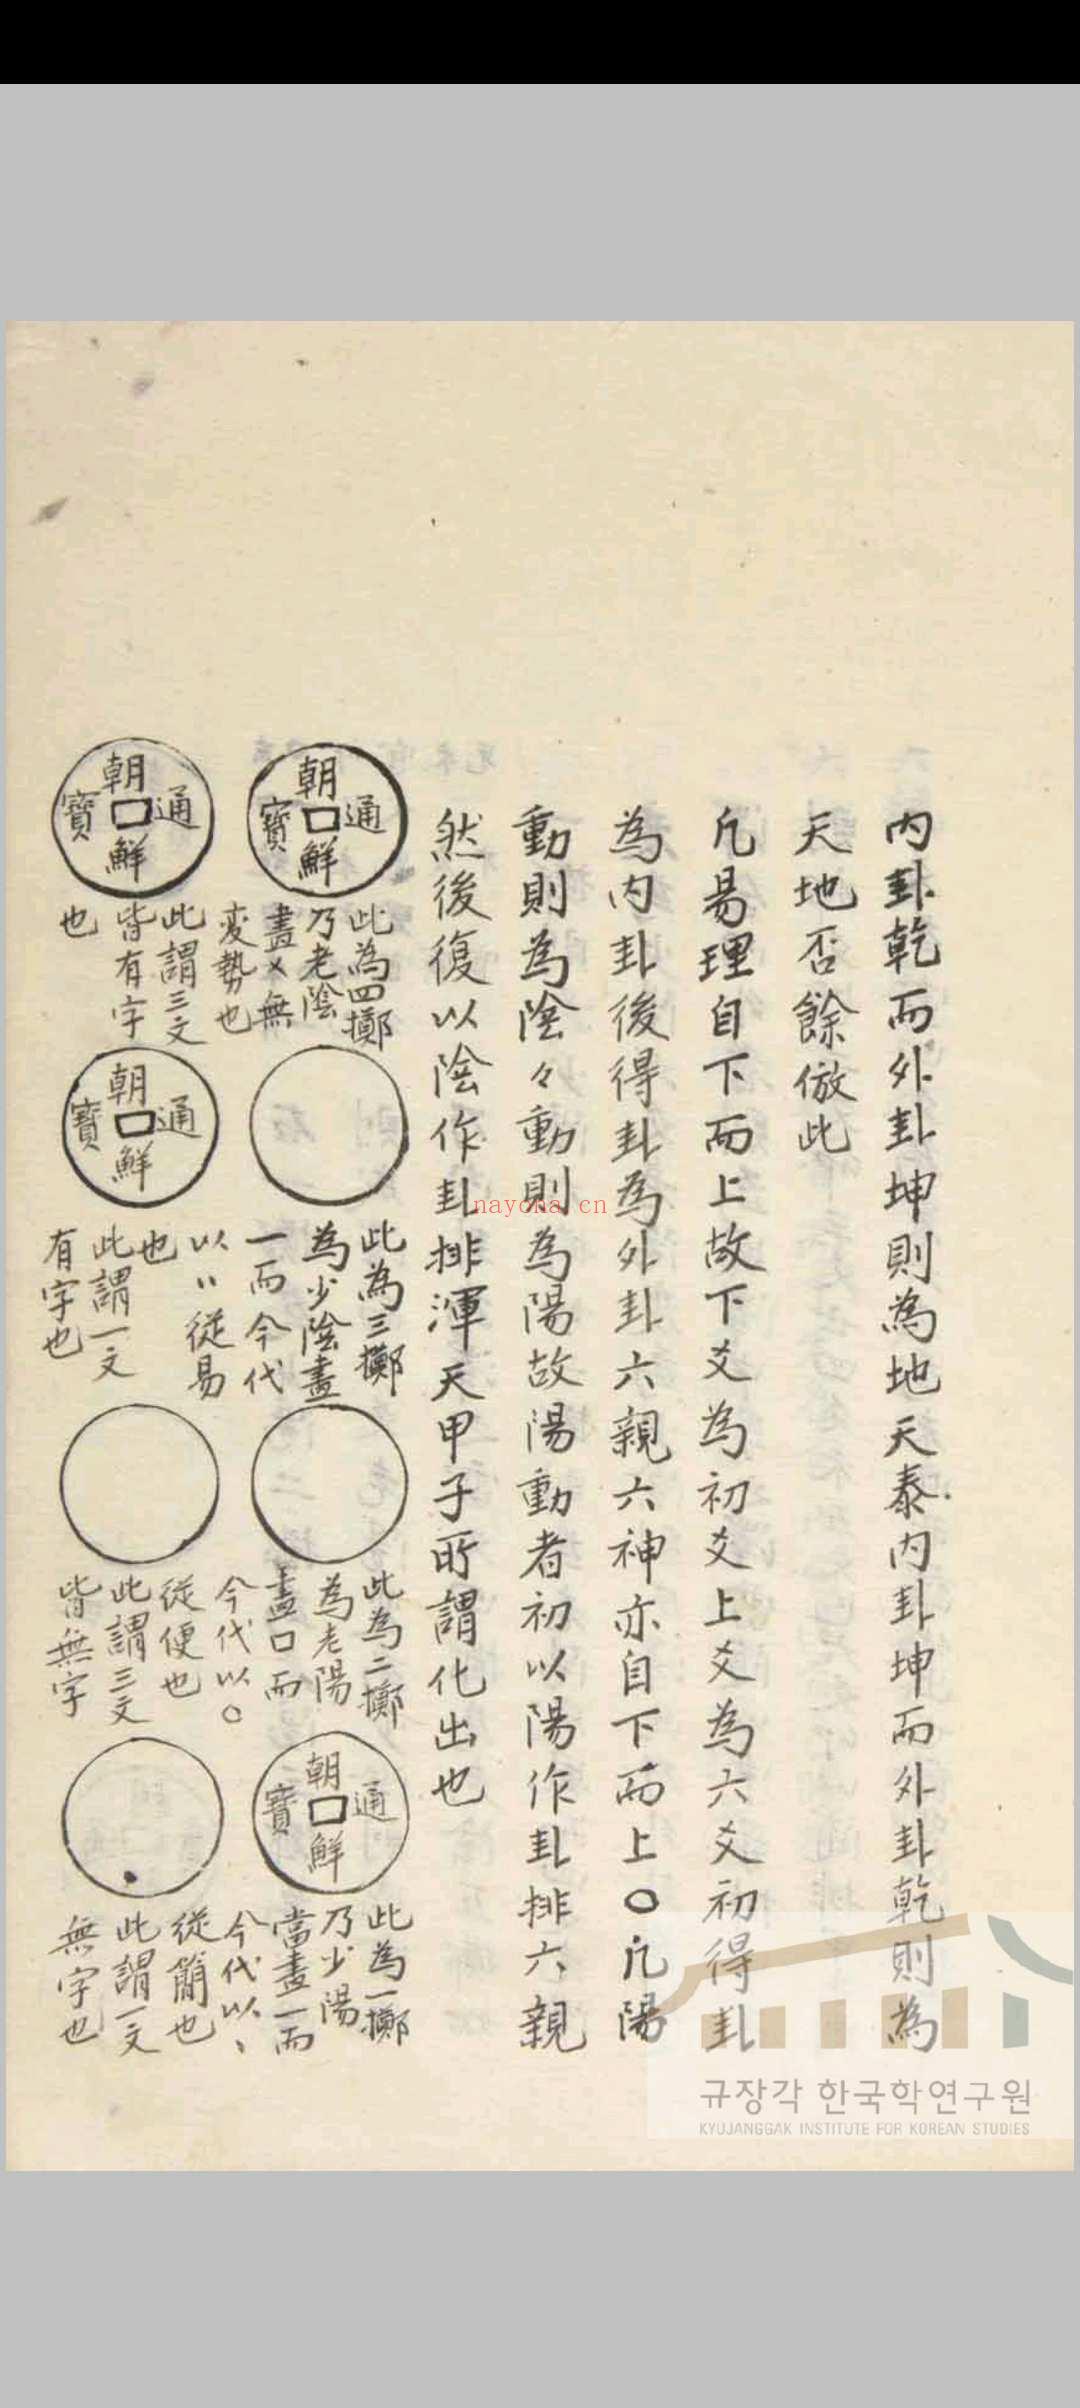 内卦乾而外卦坤則為地天泰内卦坤而外卦乾則為
天地否餘倣此
凡易理自下而上故下爻為初爻上爻為六爻初得卦
為内卦後得卦為外卦六親六神亦自下而上○凡陽
動則為陰々動則為陽故陽動者初以陽作卦排六親
然後復以陰作卦排渾天甲子所謂化出也
朝鮮通寶
此為四擲
乃老陰
畫×無
変勢也
此為三擲
為少陰畫
一而今代
以〃従易
也
此為二擲
為老陽
畫口而
今代以○
従便也
朝鮮通寶
此為一擲
乃少陽
當畫一而
今代以、
従簡也
朝鮮通寶
此謂三文
皆有字
也
朝鮮通寶
此謂一文
有字也
此謂三文
皆無字
此謂一文
無字也
nayona.cn
규장각 한국학연구원
KYUJANGGAK INSTITUTE FOR KOREAN STUDIES